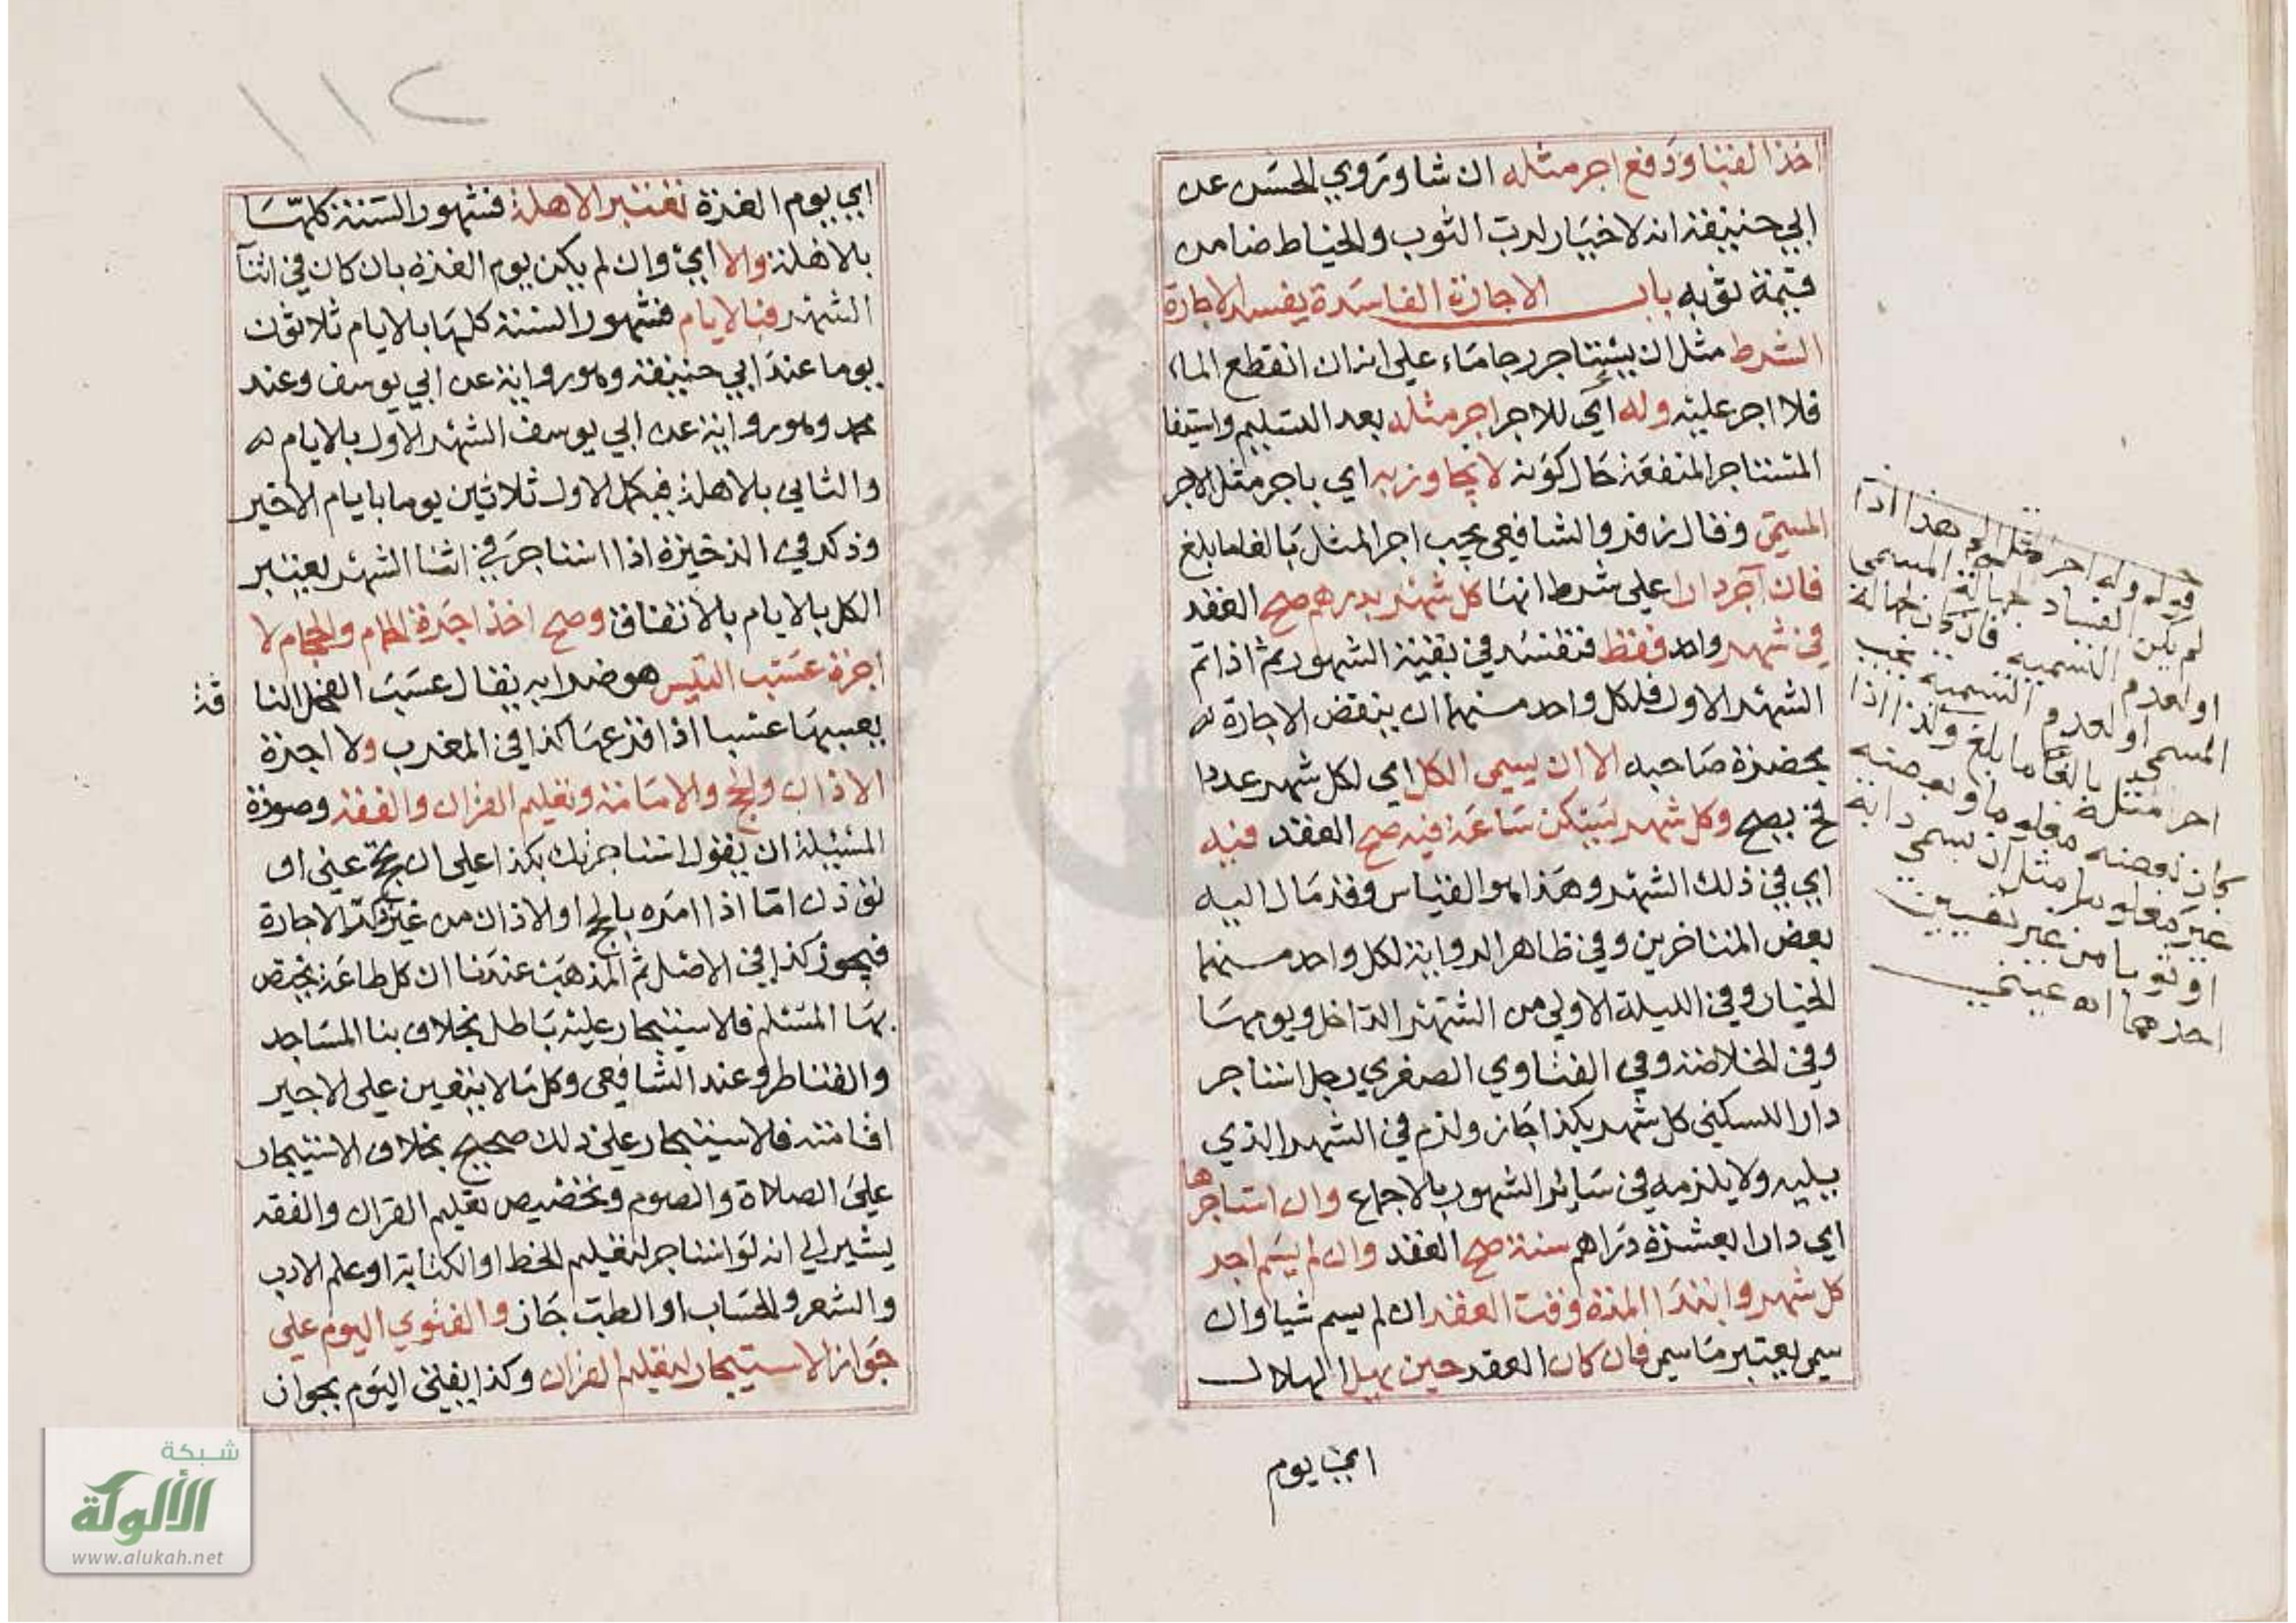 اخذ القبا ودفع اجر مثله ان شا وروي الحسن عن
ابي حنيفة انه لا خيار لرب الثوب والخياط ضامن
قيمة ثوبه باب الاجارة الفاسدة يفسد الاجارة
الشرط مثل ان يستاجر رحا ماء على انه ان انقطع الماء
فلا اجر عليه وله اي للاجر اجر مثله بعد التسليم واستيفا
المستاجر المنفعة حال كونه لا يجاوز به اي باجر مثل الاجر
المسمى وقال زفر والشافعي يجب اجر المثل بالغا ما بلغ
فان آجر دارا على شرط انها كل شهر بدرهم صح العقد
في شهر واحد فقط فتفسد في بقية الشهور ثم اذا تم
الشهر الاول فلكل واحد منهما ان ينقض الاجارة
بحضرة صاحبه الا ان يسمى الكل اي لكل شهر عددا
فح يصح وكل شهر يسكن ساعة فيه صح العقد فيه
اي في ذلك الشهر وهذا هو القياس وقد مال اليه
بعض المتاخرين وفي ظاهر الرواية لكل واحد منهما
الخيار في الليلة الاولى من الشهر الداخل ويومها
وفي الخلاصة وفي الفتاوي الصغري رجل استاجر
دارا للسكنى كل شهر بكذا جاز ولزم في الشهر الذي
يليه ولا يلزمه في سائر الشهور بالاجماع وان استاجرها
اي دارا بعشرة دراهم سنة صح العقد وان لم يسم اجر
كل شهر وابتدا المدة وقت العقد ان لم يسم شيا وان
سمى يعتبر ما سمى فان كان العقد حين يهل الهلال
اي يوم
قوله وله اجر مثله الخ هذا اذا
لم يكن الفساد لجهالة المسمى
او لعدم التسمية فان كان لجهالة
المسمى او لعدم التسمية يجب
اجر مثله بالغا ما بلغ وكذا اذا
كان بعضه معلوما وبعضه
غير معلوم مثل ان يسمى دابة
او ثوبا من غير تعيين
احدهما اه عيني
١١٢
اي يوم الغرة تعتبر الاهلة فشهور السنة كلها
بالاهلة والا اي وان لم يكن يوم الغرة بان كان في اثنا
الشهر فبالايام فشهور السنة كلها بالايام ثلاثون
يوما عند ابي حنيفة وهو رواية عن ابي يوسف وعند
محمد وهو رواية عن ابي يوسف الشهر الاول بالايام
والثاني بالاهلة فيكمل الاول ثلاثين يوما بايام الاخير
وذكر في الذخيرة اذا استاجر في اثنا الشهر يعتبر
الكل بالايام بالاتفاق وصح اخذ اجرة الحمام والحجام لا
اجرة عسب التيس هو ضرابه يقال عسب الفحل النا
قة
يعسبها عسبا اذا قرعها كذا في المغرب ولا اجرة
الاذان والحج والامامة وتعليم القران والفقه وصورة
المسئلة ان يقول استاجرتك بكذا على ان تحج عني او
تؤذن اما اذا امره بالحج او الاذان من غير ذكر الاجارة
فيجوز كذا في الاصل ثم المذهب عندنا ان كل طاعة يختص
بها المسلم فالاستيجار عليه باطل بخلاف بنا المساجد
والقناطر وعند الشافعي وكل ما لا يتعين على الاجير
اقامته فالاستيجار على ذلك صحيح بخلاف الاستيجار
على الصلاة والصوم وتخصيص تعليم القران والفقه
يشير الى انه لو استاجر لتعليم الخط او الكتابة او علم الادب
والشعر والحساب او الطب جاز والفتوي اليوم على
جواز الاستيجار لتعليم القران وكذا يفتى اليوم بجواز
شبكة
الألوكة
www.alukah.net